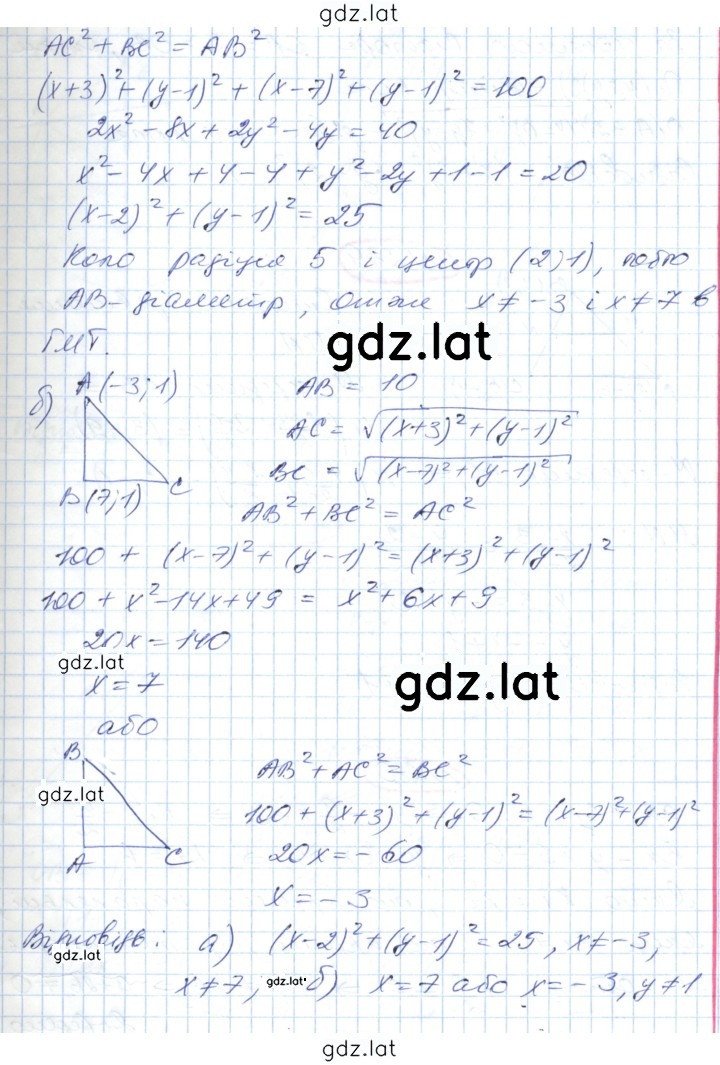 gdz.lat
AC² + BC² = AB²
(x+3)² + (y-1)² + (x-7)² + (y-1)² = 100
2x² - 8x + 2y² - 4y = 40
x² - 4x + 4 - 4 + y² - 2y + 1 - 1 = 20
(x-2)² + (y-1)² = 25
Коло радіуса 5 і центр (2;1), тобто
AB - діаметр, отже x ≠ -3 і x ≠ 7 в
ГМТ.
gdz.lat
б) A (-3; 1) AB = 10
AC = √(x+3)² + (y-1)²
BC = √(x-7)² + (y-1)²
B (7; 1) C
AB² + BC² = AC²
100 + (x-7)² + (y-1)² = (x+3)² + (y-1)²
100 + x² - 14x + 49 = x² + 6x + 9
20x = 140
gdz.lat
x = 7
gdz.lat
або
B
AB² + AC² = BC²
gdz.lat
100 + (x+3)² + (y-1)² = (x-7)² + (y-1)²
A C
20x = -60
x = -3
Відповідь: а) (x-2)² + (y-1)² = 25, x ≠ -3,
gdz.lat
x ≠ 7, gdz.lat б) x = 7 або x = -3, y ≠ 1
gdz.lat